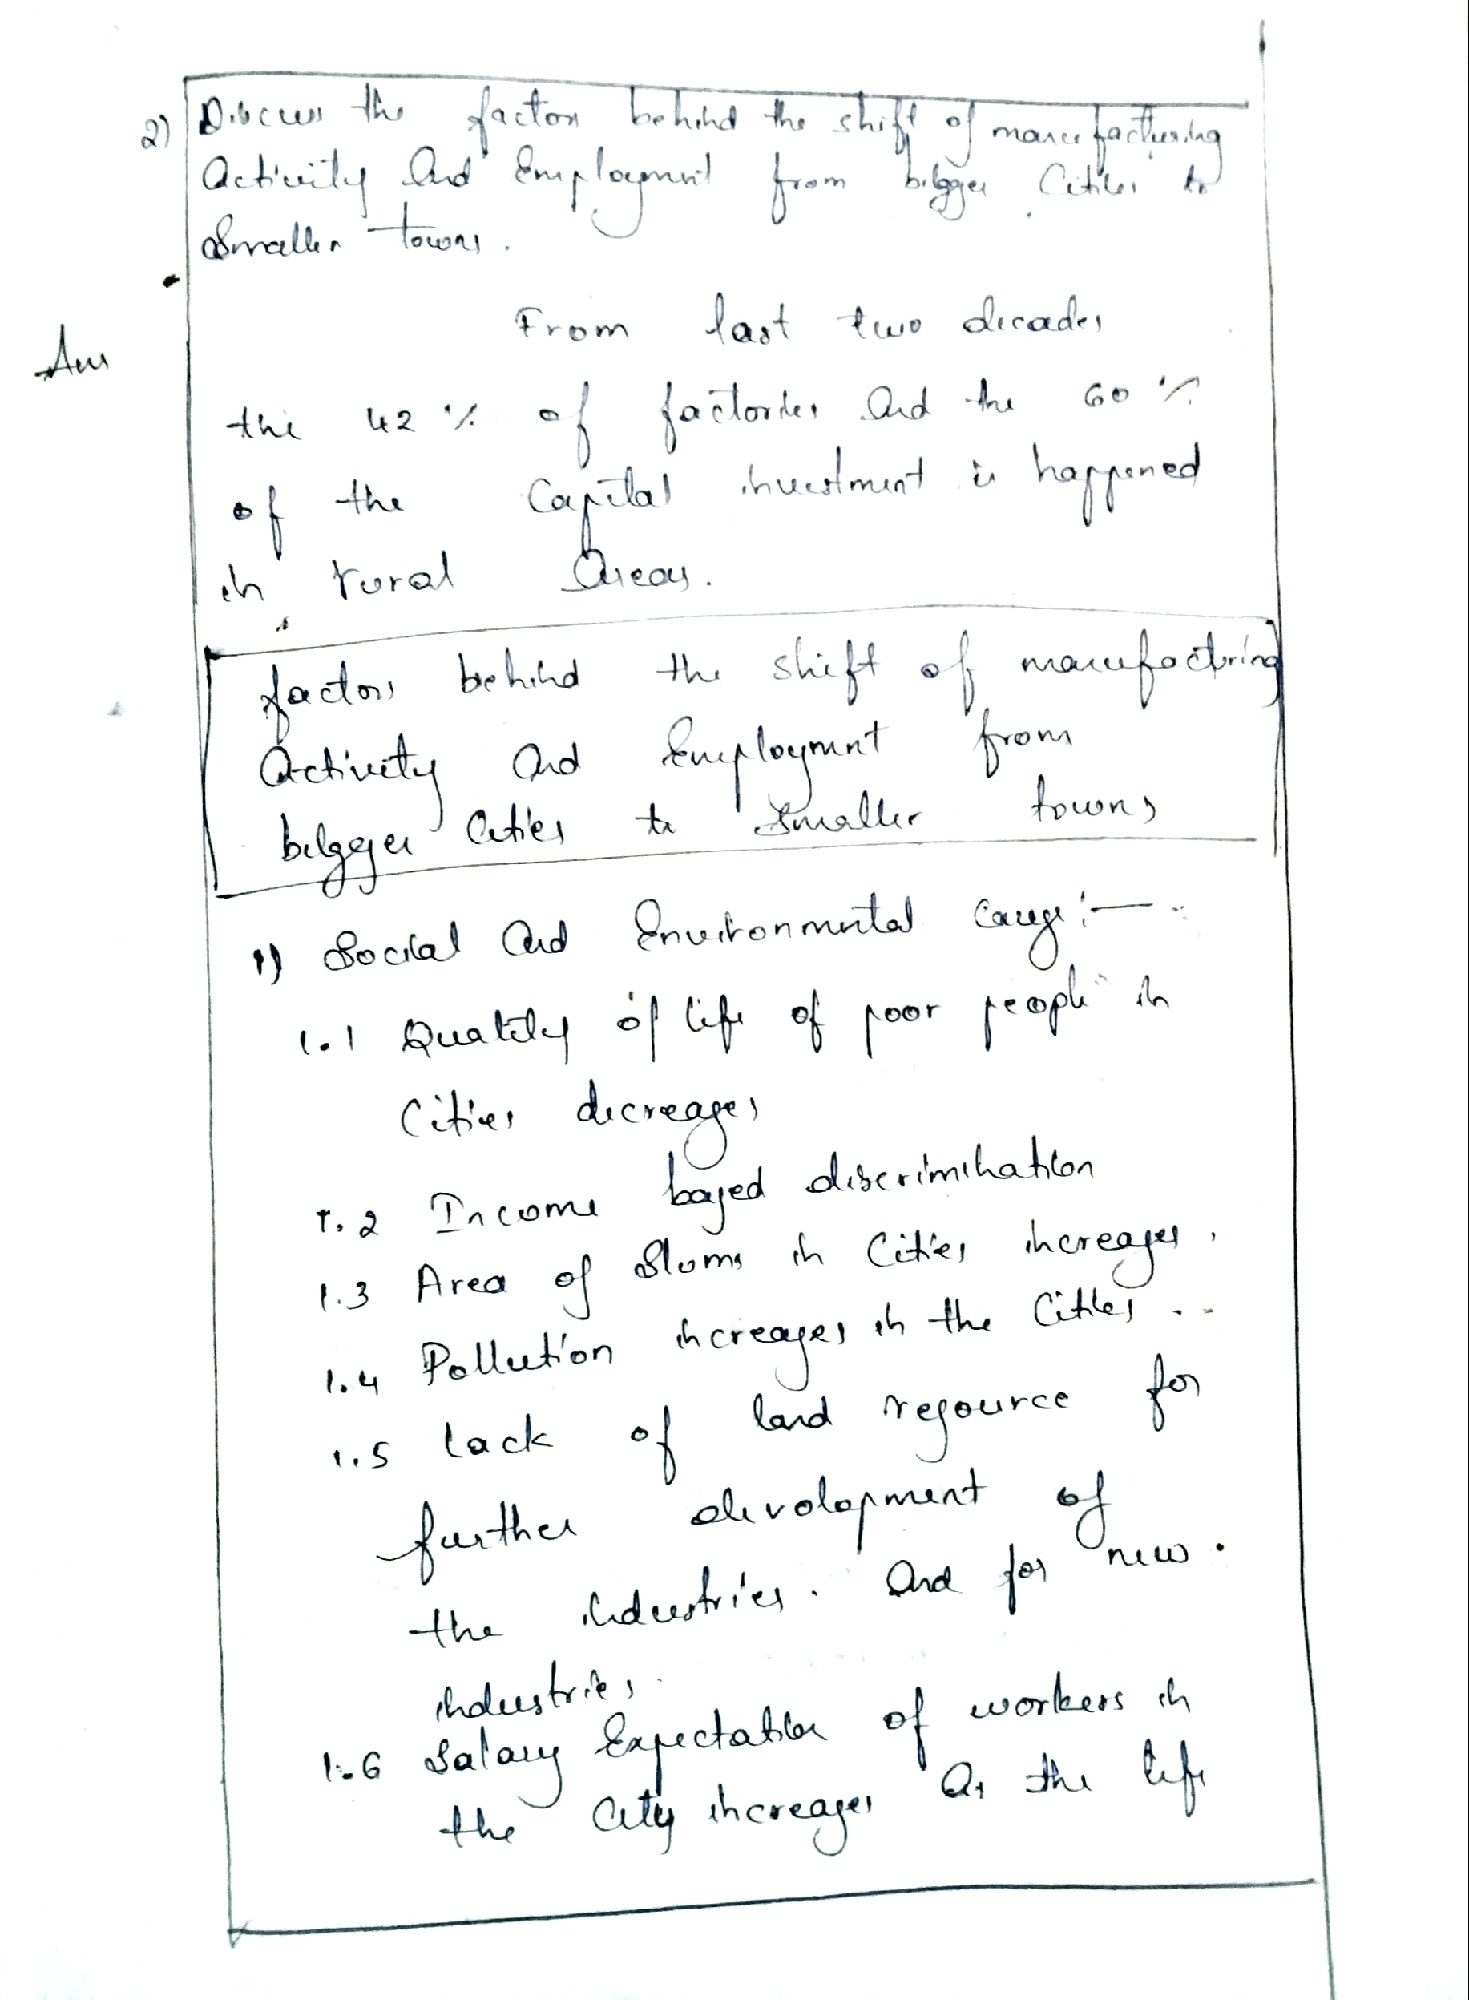 2) Discuss the factors behind the shift of manufacturing
Activity And Employment from bigger Cities to
Smaller towns.
Ans
From last two decades
the 42 % of factories And the 60 %
of the Capital investment is happened
in rural Areas.
factors behind the shift of manufactring
Activity And Employment from
bigger Cities to Smaller towns
1) Social And Environmental Cause :—
1.1 Quality of life of poor people in
Cities decreases
1.2 Income based discrimination
1.3 Area of Slums in Cities increases.
1.4 Pollution increases in the Cities ..
1.5 lack of land resource for
further devolopment of
the industries. And for new.
industries.
1.6 Salary Expectation of workers in
the City increases As the life